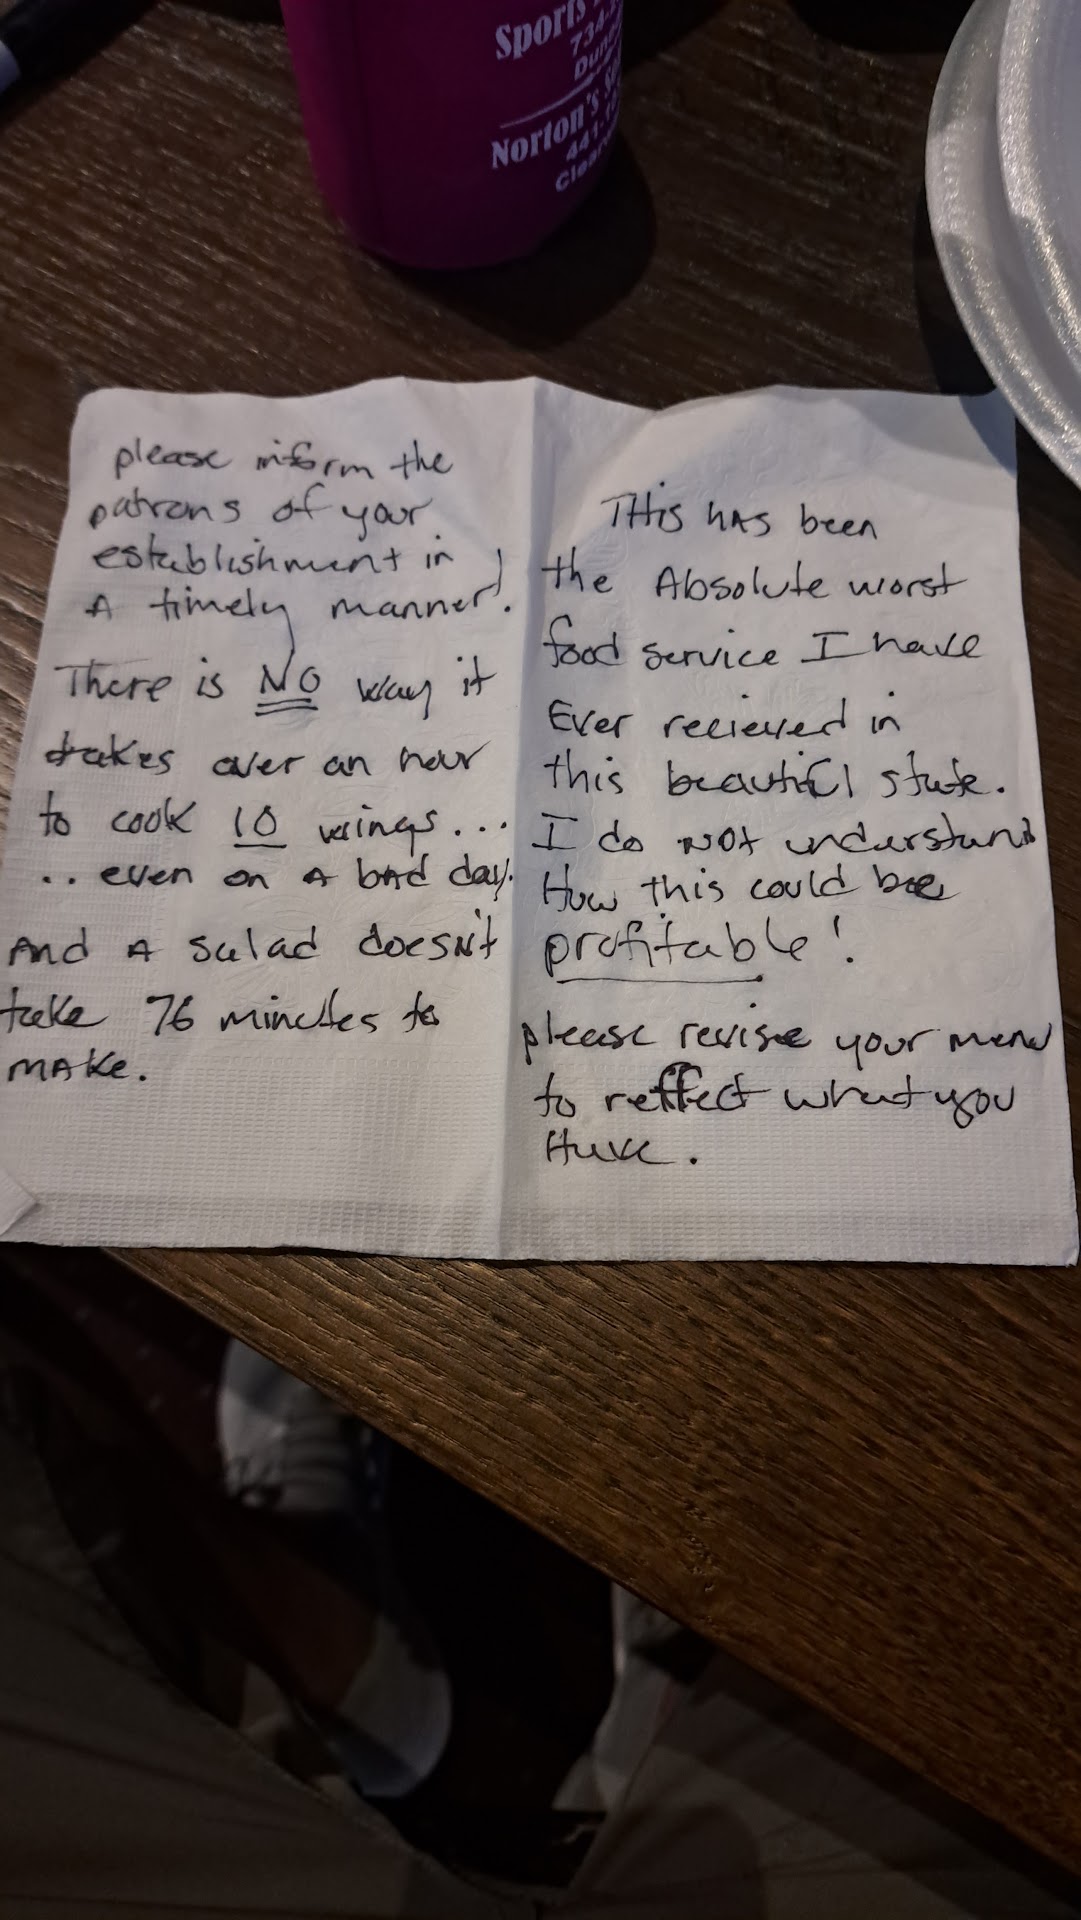 Sports
734-
Dun
Norton's S
441-1
Clear
please inform the
patrons of your
establishment in
A timely manner!.
There is NO way it
takes over an hour
to cook 10 wings...
..even on A bAd day.
And A salad doesn't
take 76 minutes to
mAKe.
THis hAs been
the Absolute worst
food service I have
Ever recieved in
this beautiful state.
I do NOt understand
How this could be
profitable!
please revise your menu
to reffect what you
Have.